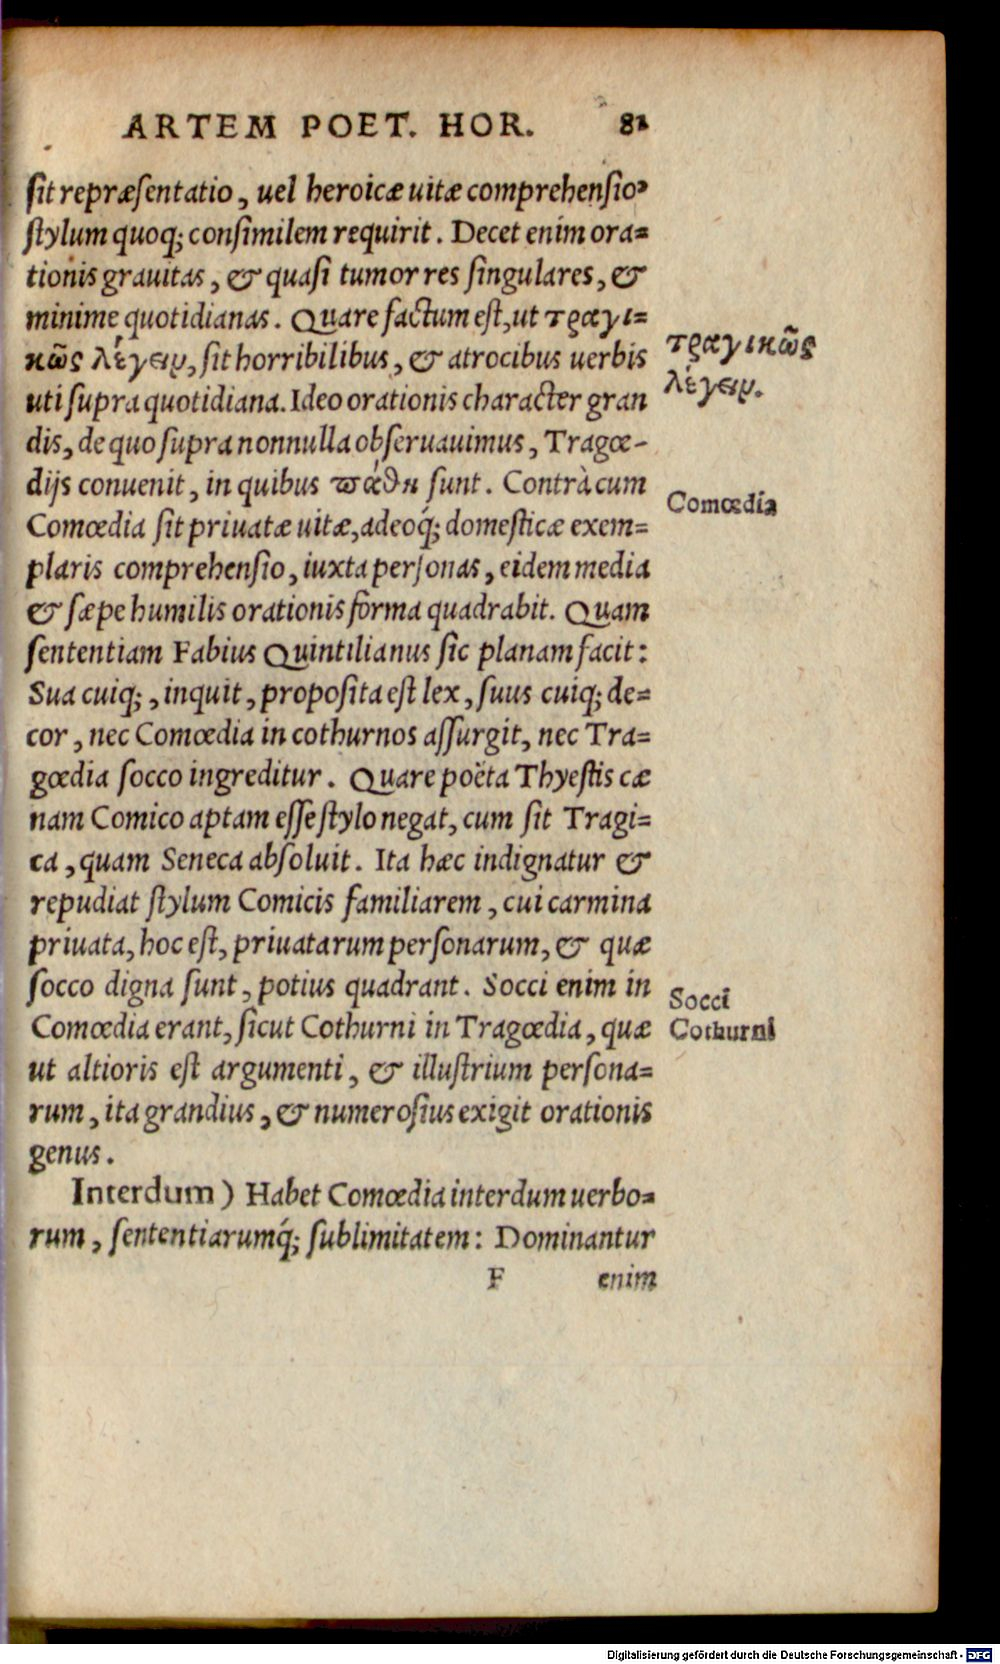 ARTEM POET. HOR. 81
sit repræsentatio, uel heroicæ uitæ comprehensio,
stylum quoq; consimilem requirit. Decet enim ora=
tionis grauitas, & quasi tumor res singulares, &
minime quotidianas. Quare factum est, ut τραγι=
κῶς λέγειν, sit horribilibus, & atrocibus uerbis
uti supra quotidiana. Ideo orationis character gran
dis, de quo supra nonnulla obseruauimus, Tragœ-
dijs conuenit, in quibus πάθη sunt. Contrà cum
Comœdia sit priuatæ uitæ, adeoq́; domesticæ exem=
plaris comprehensio, iuxta personas, eidem media
& sæpe humilis orationis forma quadrabit. Quam
sententiam Fabius Quintilianus sic planam facit:
Sua cuiq;, inquit, proposita est lex, suus cuiq; de=
cor, nec Comœdia in cothurnos assurgit, nec Tra=
gœdia socco ingreditur. Quare poëta Thyestis cæ
nam Comico aptam esse stylo negat, cum sit Tragi=
ca, quam Seneca absoluit. Ita hæc indignatur &
repudiat stylum Comicis familiarem, cui carmina
priuata, hoc est, priuatarum personarum, & quæ
socco digna sunt, potius quadrant. Socci enim in
Comœdia erant, sicut Cothurni in Tragœdia, quæ
ut altioris est argumenti, & illustrium persona=
rum, ita grandius, & numerosius exigit orationis
genus.
Interdum) Habet Comœdia interdum uerbo=
rum, sententiarumq́; sublimitatem: Dominantur
F enim
τραγικῶς
λέγειν.
Comœdia
Socci
Cothurni
Digitalisierung gefördert durch die Deutsche Forschungsgemeinschaft - DFG